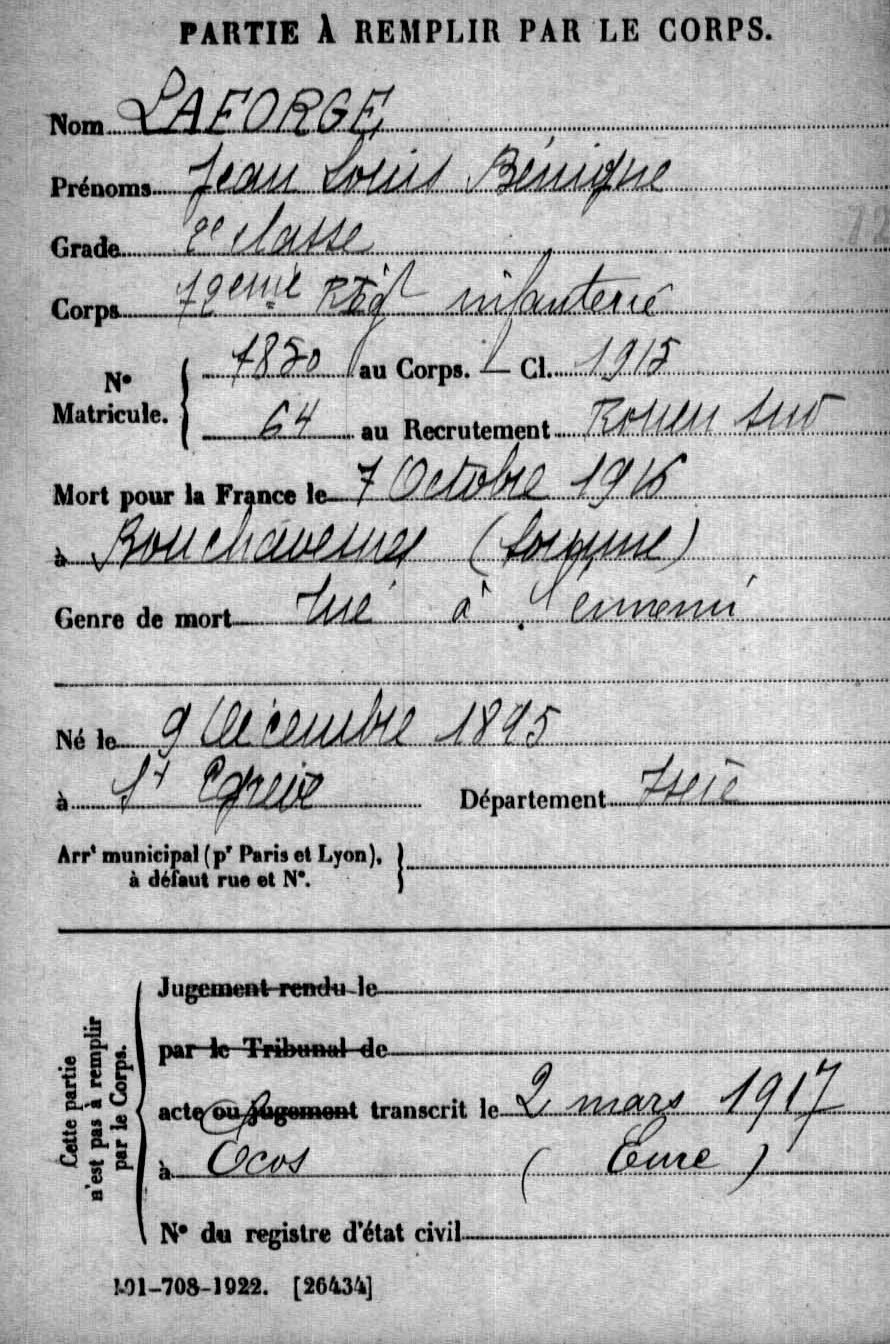 PARTIE À REMPLIR PAR LE CORPS.
Nom LAFORGE
Prénoms Jean Louis Bénigne
Grade 2e classe
Corps 72eme Régt infanterie
N° Matricule. { 7850 au Corps. — Cl. 1915
64 au Recrutement Rouen Sud
Mort pour la France le 7 Octobre 1916
à Bouchavesnes (Somme)
Genre de mort Tué à l'ennemi
Né le 9 Décembre 1895
à St Egrève Département Isère
Arrt municipal (pr Paris et Lyon),
à défaut rue et N°.
Cette partie n'est pas à remplir par le Corps.
Jugement rendu le
par le Tribunal de
acte ou jugement transcrit le 2 mars 1917
à Ecos (Eure)
N° du registre d'état civil
101-708-1922. [26434]